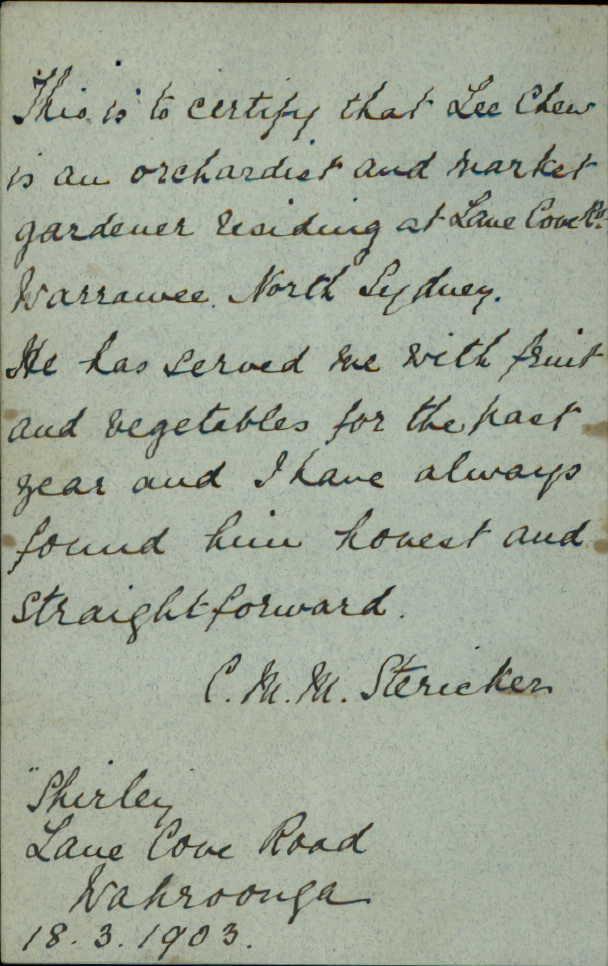 This is to certify that Lee Chew
is an orchardist and market
gardener residing at Lane Cove Rd.
Warrawee. North Sydney.
He has served me with fruit
and vegetables for the past
year and I have always
found him honest and
straightforward.
C. M. M. Stericker
"Shirley"
Lane Cove Road
Wahroonga
18.3.1903.